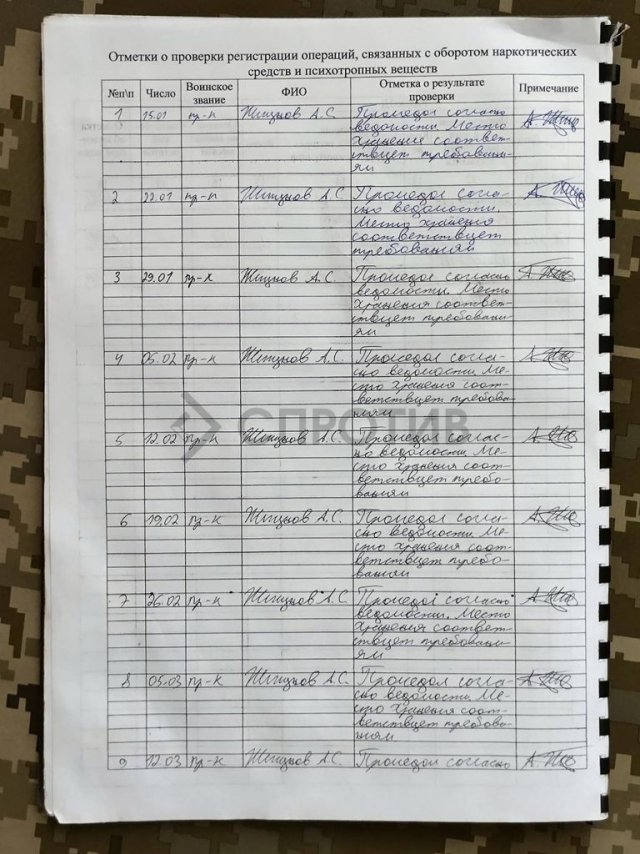 Отметки о проверки регистрации операций, связанных с оборотом наркотических
средств и психотропных веществ
№п\п Число Воинское звание ФИО Отметка о результате проверки Примечание
1 15.01 пр-к А.С. Промедол согласно
ведомости. Место
хранения соответ-
ствует требовани-
ям
2 22.01 пр-к А.С. Промедол соглас-
но ведомости.
Место хранения
соответствует
требованиям
3 29.01 пр-к А.С. Промедол согласно
ведомости. Место
хранения соответ-
ствует требовани-
ям
4 05.02 пр-к А.С. Промедол согла-
сно ведомости. Ме-
сто хранения соот-
ветствует требова-
ниям
СПРОТИВ
5 12.02 пр-к А.С. Промедол соглас-
но ведомости. Ме-
сто хранения соот-
ветствует требо-
ваниям
6 19.02 пр-к А.С. Промедол согла-
сно ведомости. Ме-
сто хранения соот-
ветствует требо-
ваниям
7 26.02 пр-к А.С. Промедол согласно
ведомости. Место
хранения соответ-
ствует требовани-
ям
8 05.03 пр-к А.С. Промедол согла-
сно ведомости. Ме-
сто хранения соот-
ветствует требова-
ниям
9 12.03 пр-к А.С. Промедол согласно